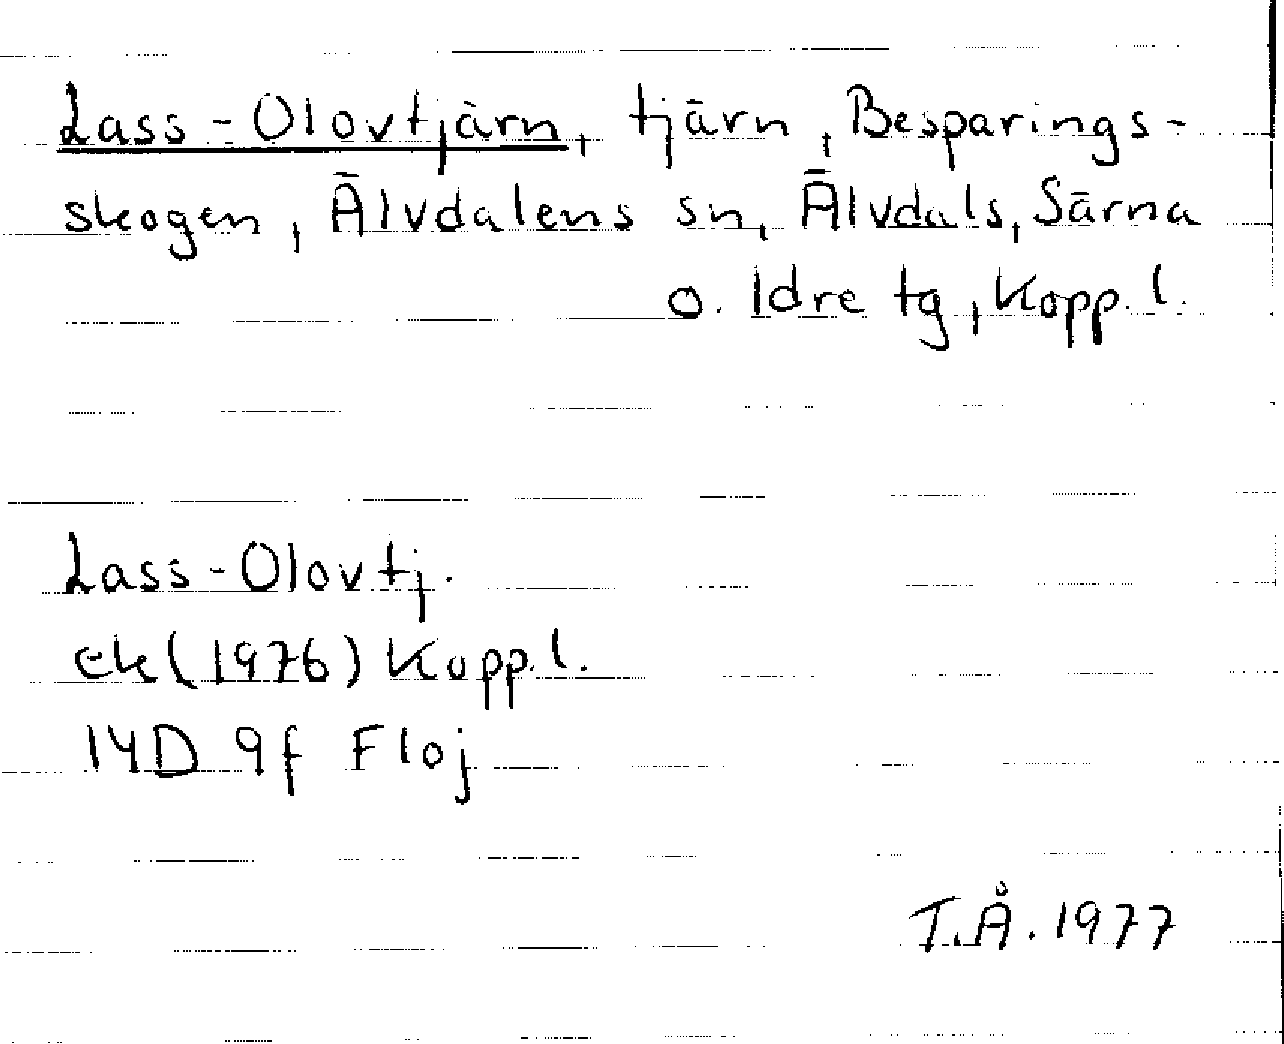 Lass-Olovtjärn, tjärn, Besparings-
skogen, Älvdalens sn, Älvdals, Särna
o. Idre tg, Kopp. l.
Lass-Olovtj.
ek (1976) Kopp. l.
14D 9f Floj
T.Å. 1977